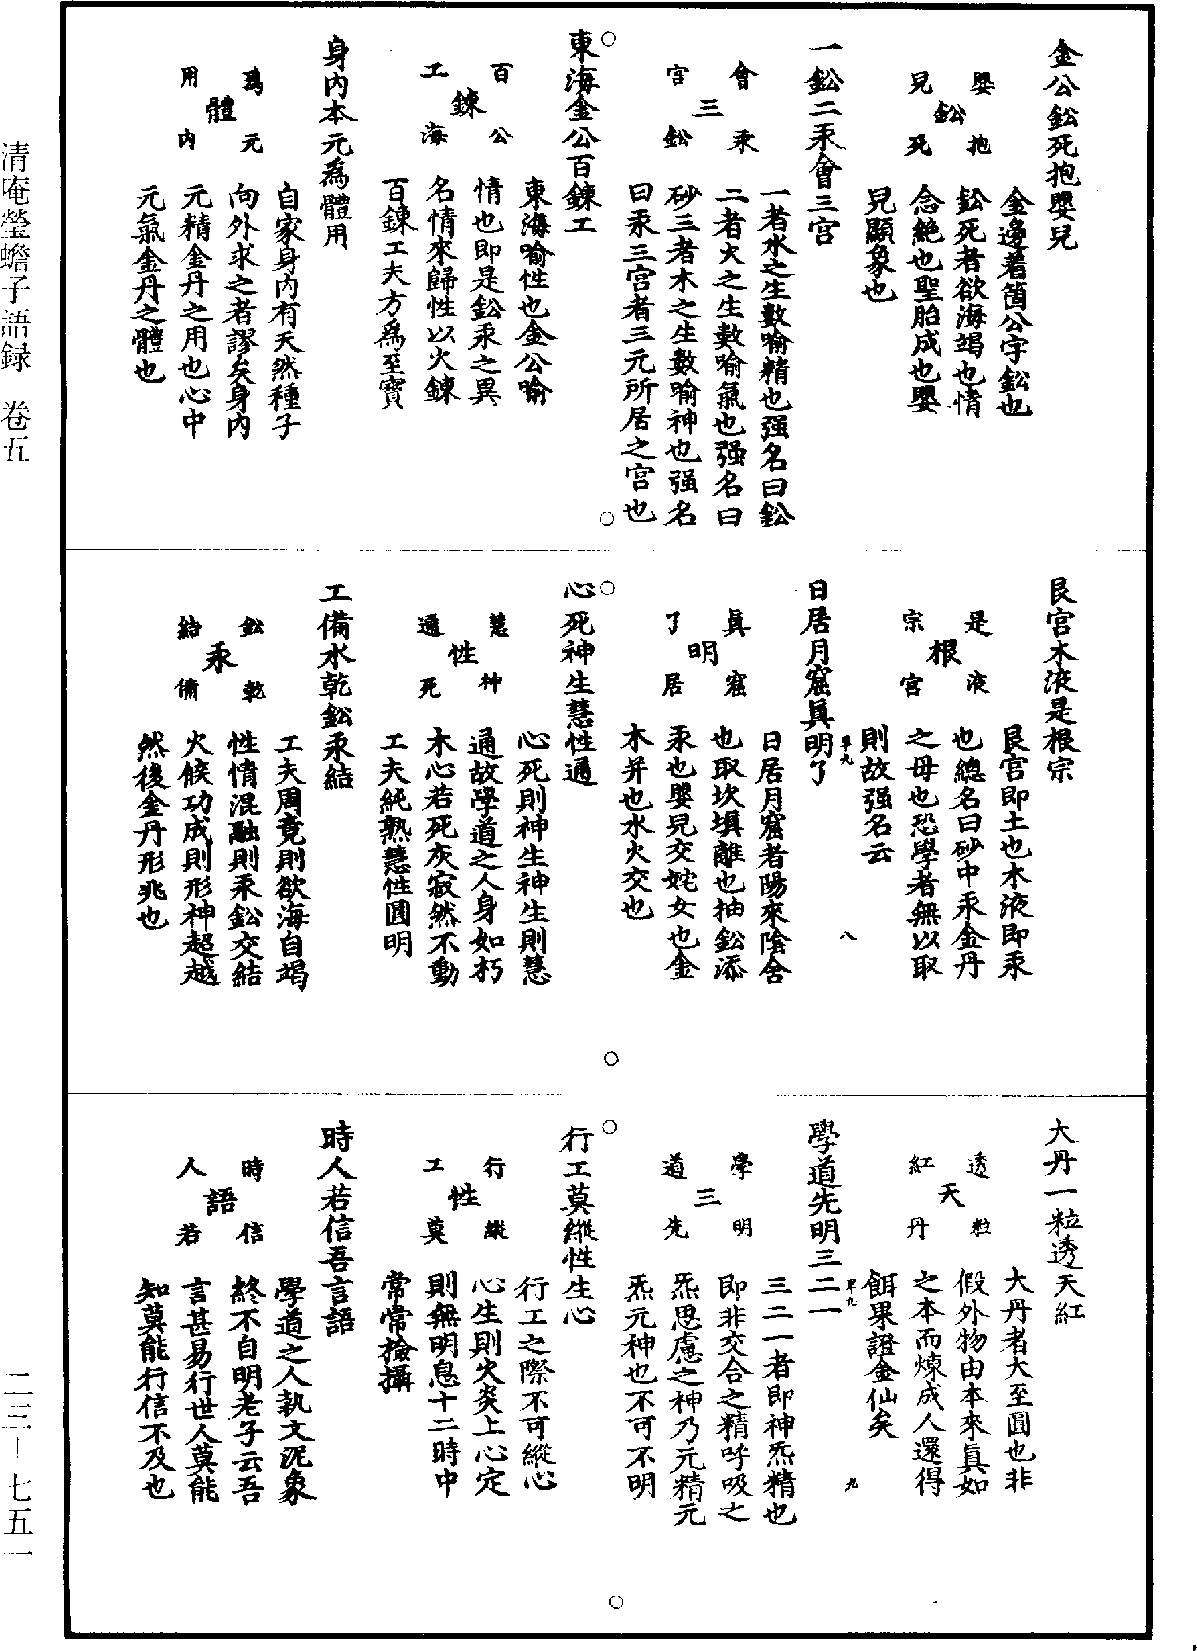 金公鈆死抱嬰兒
嬰抱
鈆
兒死
金邊着箇公字鈆也
鈆死者欲海竭也情
念絶也聖胎成也嬰
兒顯象也
一鈆二汞會三宫
會汞
三
宫鈆
一者水之生數喻精也强名曰鈆
二者火之生數喻氣也强名曰
砂三者木之生數喻神也强名
曰汞三宫者三元所居之宫也
東海金公百鍊工
百公
鍊
工海
東海喻性也金公喻
情也即是鈆汞之異
名情來歸性以火鍊
百鍊工夫方爲至寳
身内本元爲體用
爲元
體
用内
自家身内有天然種子
向外求之者謬矣身内
元精金丹之用也心中
元氣金丹之體也
艮宫木液是根宗
是液
根
宗宫
艮宫即土也木液即汞
也總名曰砂中汞金丹
之母也恐學者無以取
則故强名云
日居月窟眞明了
眞窟
明
了居
日居月窟者陽來隂舍
也取坎塡離也抽鈆添
汞也嬰兒交姹女也金
木并也水火交也
八
心死神生慧性通
慧神
性
通死
心死則神生神生則慧
通故學道之人身如朽
木心若死灰寂然不動
工夫純熟慧性圓明
工備水乾鈆汞結
鈆乾
汞
結備
工夫周竟則欲海自竭
性情混融則汞鈆交結
火候功成則形神超越
然後金丹形兆也
大丹一粒透天紅
透粒
天
紅丹
大丹者大至圓也非
假外物由本來眞如
之本而煉成人還得
餌果證金仙矣
學道先明三二一
學明
三
道先
三二一者即神炁精也
即非交合之精呼吸之
炁思慮之神乃元精元
炁元神也不可不明
九
行工莫縱性生心
行縱
性
工莫
行工之際不可縱心
心生則火炎上心定
則無明息十二時中
常常撿攝
時人若信吾言語
時信
語
人若
學道之人執文泥象
終不自明老子云吾
言甚易行世人莫能
知莫能行信不及也
清庵瑩蟾子語録　卷五
二三－七五一